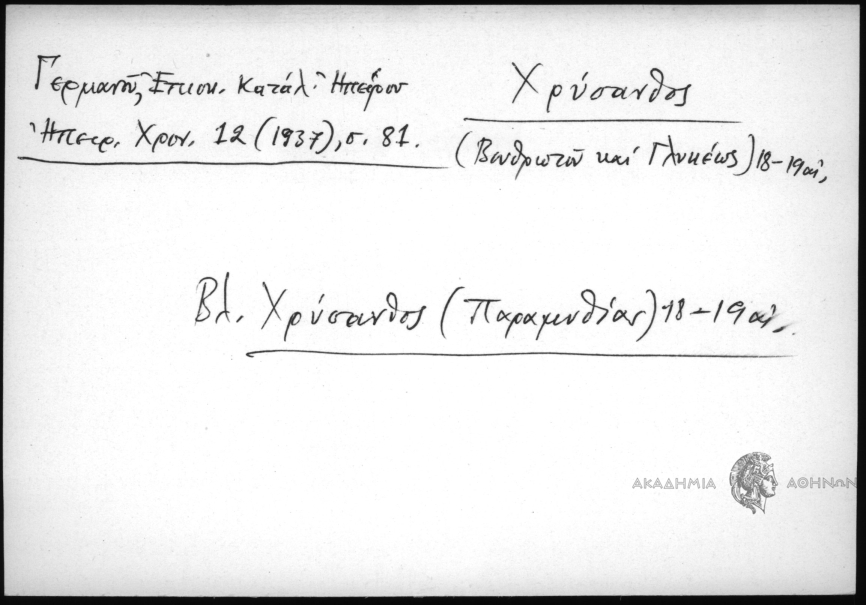 Γερμανοῦ, Ἐπισκ. Κατάλ. Ἠπείρου
Ἠπειρ. Χρον. 12 (1937), σ. 81.
Χρύσανθος
(Βουθρωτοῦ καί Γλυκέως) 18-19 αἰ,
Βλ. Χρύσανθος (Παραμυθίας) 18-19 αἰ.
ΑΚΑΔΗΜΙΑ ΑΘΗΝΩΝ